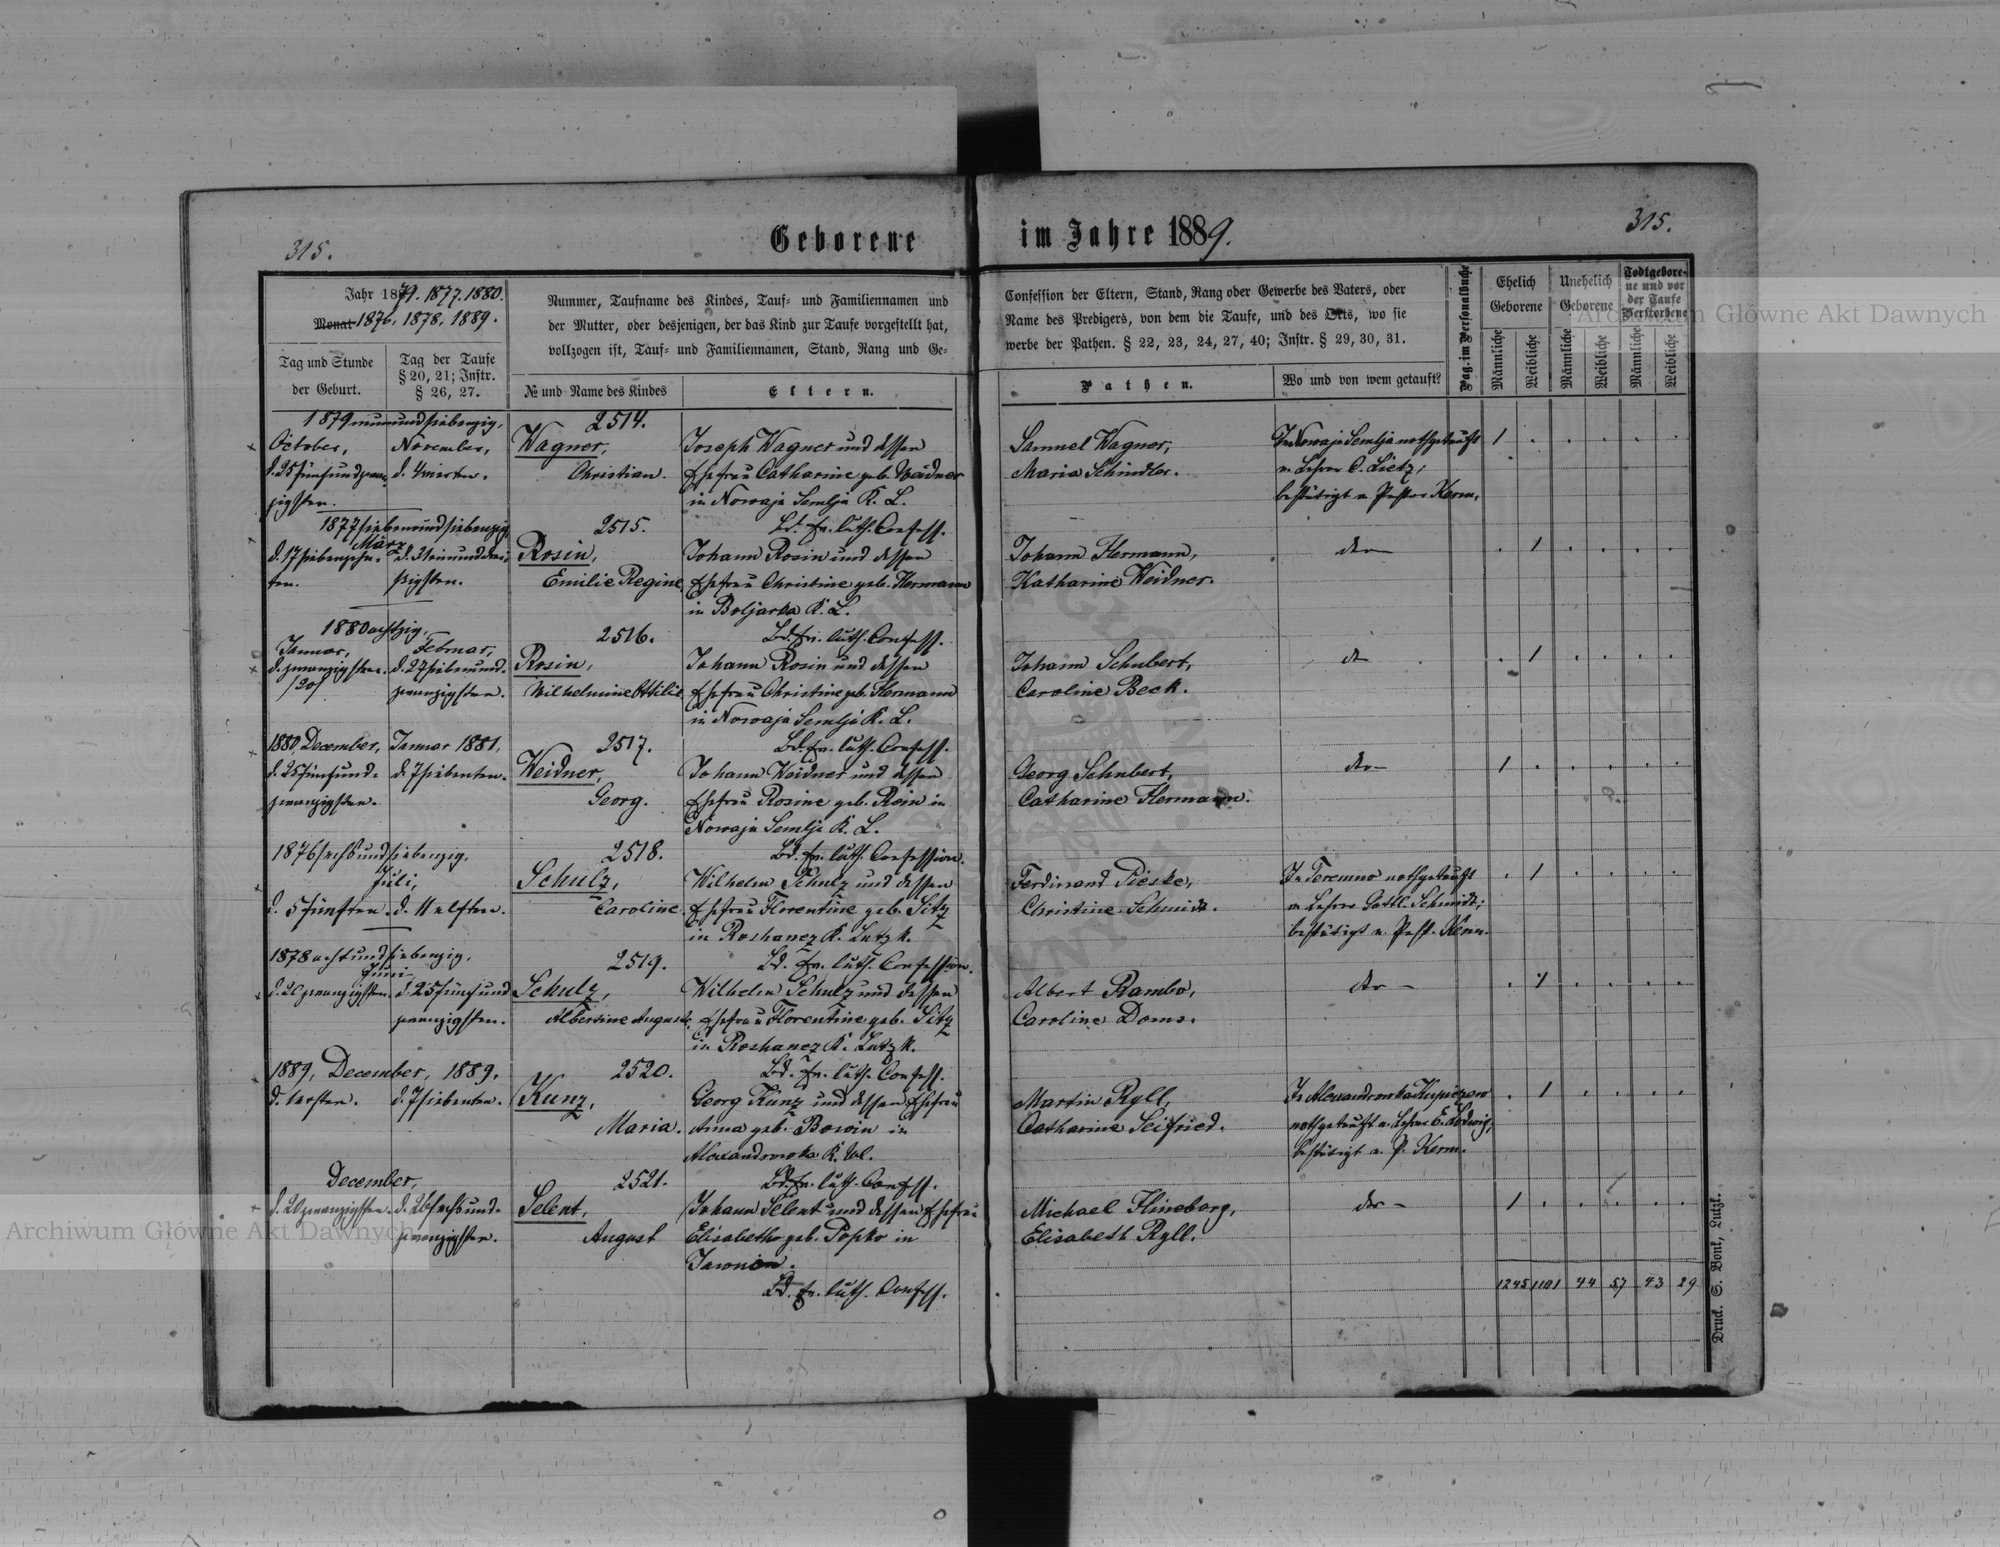 Geborene im Jahre 1889.
315.
315.
Jahr 1879. 1877. 1880.
Monat 1876, 1878, 1889.
Tag und Stunde
der Geburt.
Tag der Taufe
§ 20, 21; Instr.
§ 26, 27.
Nummer, Taufname des Kindes, Tauf- und Familiennamen und
der Mutter, oder desjenigen, der das Kind zur Taufe vorgestellt hat,
vollzogen ist, Tauf- und Familiennamen, Stand, Rang und Ge-
№ und Name des Kindes
Eltern.
Confession der Eltern, Stand, Rang oder Gewerbe des Vaters, oder
Name des Predigers, von dem die Taufe, und des Orts, wo sie
werbe der Pathen. § 22, 23, 24, 27, 40; Instr. § 29, 30, 31.
Pathen.
Wo und von wem getauft?
Pag. im Personalbuche
Ehelich
Geborene
Unehelich
Geborene
Todtgebore-
ne und vor
der Taufe
Verstorbene
Männliche
Weibliche
Männliche
Weibliche
Männliche
Weibliche
1879 neunundsiebenzig,
October,
d. 25 fünfundzwan-
zigsten.
November,
d. 4 vierten.
2514.
Wagner,
Christian.
Joseph Wagner und dessen
Ehefrau Catharine geb. Weidner
in Nowaja Semlja K. L.
Bd. ev. luth. Confess.
Samuel Wagner,
Maria Schindler.
In Nowaja Semlja nothgetauft
v. Lehrer O. Lietz;
bestätigt v. Pastor Kerm.
1 . . . . .
1877 siebenundsiebenzig,
März
d. 17 siebenzehn-
ten.
d. 31 einunddrei-
ßigsten.
2515.
Rosin,
Emilie Regine.
Johann Rosin und dessen
Ehefrau Christine geb. Hermann
in Boljarka K. L.
Bd. ev. luth. Confess.
Johann Hermann,
Katharine Weidner.
dto
. 1 . . . .
1880 achtzig,
Januar,
d. zwanzigsten.
/20/
Februar,
d. 27 siebenund-
zwanzigsten.
2516.
Rosin,
Wilhelmine Ottilie.
Johann Rosin und dessen
Ehefrau Christine geb. Hermann
in Nowaja Semlja K. L.
Bd. ev. luth. Confess.
Johann Schubert,
Caroline Beck.
dto
. 1 . . . .
1880, December,
d. 25 fünfund-
zwanzigsten.
Januar 1881,
d. 7 siebenten.
2517.
Weidner,
Georg.
Johann Weidner und dessen
Ehefrau Rosine geb. Rein in
Nowaja Semlja K. L.
Bd. ev. luth. Confession.
Georg Schubert,
Catharine Hermann.
dto
1 . . . . .
1876 sechsundsiebenzig,
Juli,
d. 5 fünften.
d. 11 elften.
2518.
Schulz,
Caroline.
Wilhelm Schulz und dessen
Ehefrau Florentine geb. Sitz
in Roshanez K. Lutzk.
Bd. ev. luth. Confession.
Ferdinand Pieske,
Christine Schmidt.
In Teremno nothgetauft
v. Lehrer Gottl. Schmidt;
bestätigt v. Past. Kerm.
. 1 . . . .
1878 achtundsiebenzig,
Juni
d. 20 zwanzigsten.
d. 25 fünfund
zwanzigsten.
2519.
Schulz,
Albertine Auguste.
Wilhelm Schulz und dessen
Ehefrau Florentine geb. Sitz
in Roshanez K. Lutzk.
Bd. ev. luth. Confess.
Albert Rambo,
Caroline Doms.
dto
. 1 . . . .
1889, December, 1889,
d. 1 ersten.
d. 7 siebenten.
2520.
Kunz,
Maria.
Georg Kunz und dessen Ehefrau
Anna geb. Bowin in
Alexandrowka K. Wl.
Bd. ev. luth. Confess.
Martin Ryll,
Catharine Seifried.
In Alexandrowka Kupiczow
nothgetauft v. Lehrer E. Ludwig,
bestätigt v. P. Kerm.
. 1 . . . .
December,
d. 20 zwanzigsten.
d. 26 sechsund-
zwanzigsten.
2521.
Selent,
August
Johann Selent und dessen Ehefrau
Elisabeth geb. Popko in
Bd. ev. luth. Confess.
Michael Flineborg,
Elisabeth Ryll.
dto
1 . . . . .
1245 1101 44 57 43 29
Druck. S. Bonk, Lutzk.
Archiwum Główne Akt Dawnych
Archiwum Główne Akt Dawnych